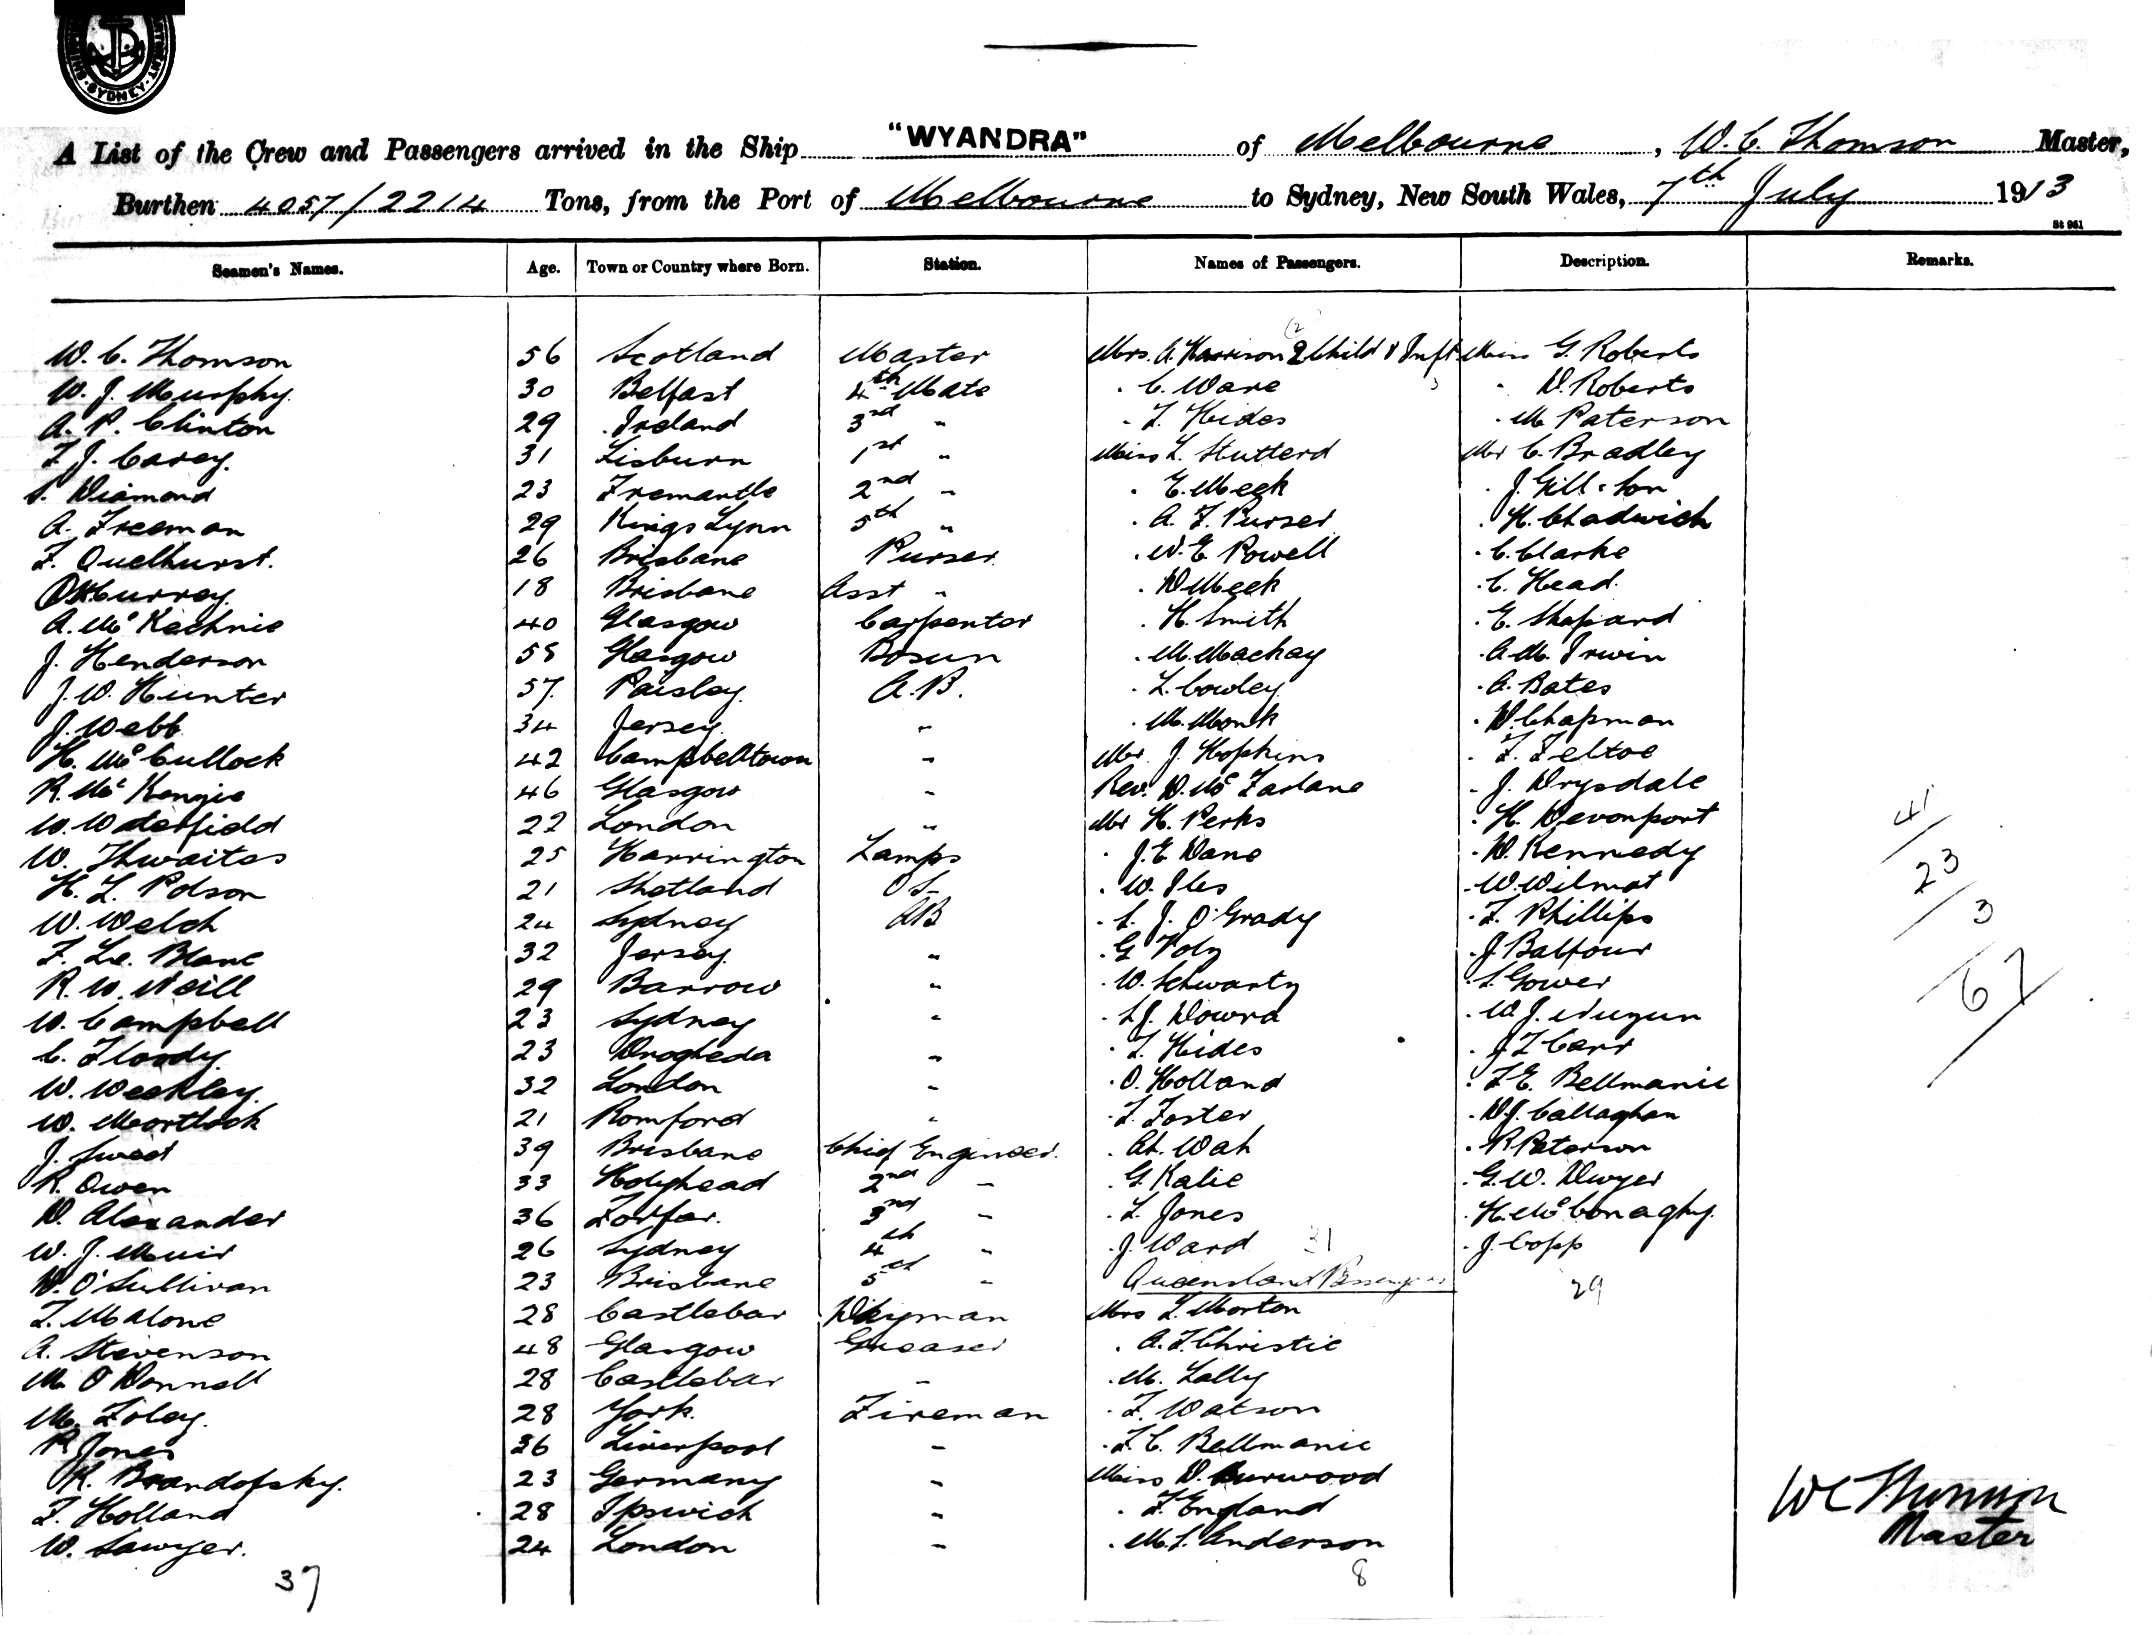 SYDNEY
A List of the Crew and Passengers arrived in the Ship "WYANDRA" of Melbourne, W. C. Thomson Master,
Burthen 4057/2214 Tons, from the Port of Melbourne to Sydney, New South Wales, 7th July 1913
St 961
Seamen's Names. Age. Town or Country where Born. Station. Names of Passengers. Description. Remarks.
W. C. Thomson 56 Scotland Master Mrs. A. Harrison 2 Child & Inft Miss G. Roberts
W. J. Murphy 30 Belfast 4th Mate . C. Ware " D. Roberts
A. P. Clinton 29 Ireland 3rd " . F. Hides . M Paterson
F. J. Carey. 31 Lisburn 1st " Miss L. Stutterd Mr C. Bradley
S. Diamond 23 Fremantle 2nd " . E. Meek . J. Gill & Son
A. Freeman 29 Kings Lynn 5th " . A. F. Purser . H. Chadwick
F. Ouelhurst. 26 Brisbane Purser . W. E Powell . C. Clarke
Murray 18 Brisbane Asst " . D Meek . C. Head
A. McKechnie 40 Glasgow Carpenter . H. Smith . E. Shepard
J. Henderson 58 Glasgow Bosun . M. Mackay . A. M. Irwin
J. W. Hunter 57 Paisley A.B. . L. Cowley . A. Bates
J. Webb 34 Jersey " . M. Monk . W. Chapman
H. McCullock 42 Campbelltown " Mr. J. Hopkins . F. Feltoe
R. McKenzie 46 Glasgow " Rev. D. McFarlane . J. Drysdale
W. Waterfield 22 London " Mr H. Perks . H. Devonport
W. Thwaites 25 Harrington Lamps . J. E. Dane . W. Kennedy
H. L. Polson 21 Shetland OS . W. Iles . W. Wilmot
W. Welch 24 Sydney AB . S. J. O'Grady . F. Phillips
F. Le. Blanc 32 Jersey " . G Volz . J. Balfour
R. W. Neill 29 Barrow " . W. Schwartz . S. Gower
W. Campbell 23 Sydney " . S J. Dowra . W. J. Nugun
C. Floody. 23 Drogheda " . F. Hides . J F Carr
W. Weekley. 32 London " . O. Holland . F. E. Bellmanie
W. Mortlock 21 Romford " . F. Foster . W. J. Callaghan
J. Sweet 39 Brisbane Chief Engineer. . Ah. Wah . R Paterson
R. Owen 33 Holyhead 2nd " . G. Kalie . G. W. Dwyer
D. Alexander 36 Forfar. 3rd " . L. Jones . H. McConaghy.
W. J. Muir 26 Sydney 4th " . J. Ward 31 . J. Copp
D. O'Sullivan 23 Brisbane 5th " Queensland Passengers 29
F. Malone 28 Castlebar Dkyman Mrs L. Morton
A. Stevenson 48 Glasgow Greaser . A. F. Christie
M O'Donnell 28 Castlebar " . M. Lally
M. Foley. 28 York. Fireman . F. Watson
R. Jones 36 Liverpool " . F. C. Bellmanie
K. Brandofsky. 23 Germany " Miss D. Burwood
F. Holland 28 Ipswich " . F. England
W. Sawyer. 24 London " . M. S. Anderson
37 8
41
23
3
67
WC Thomson
Master